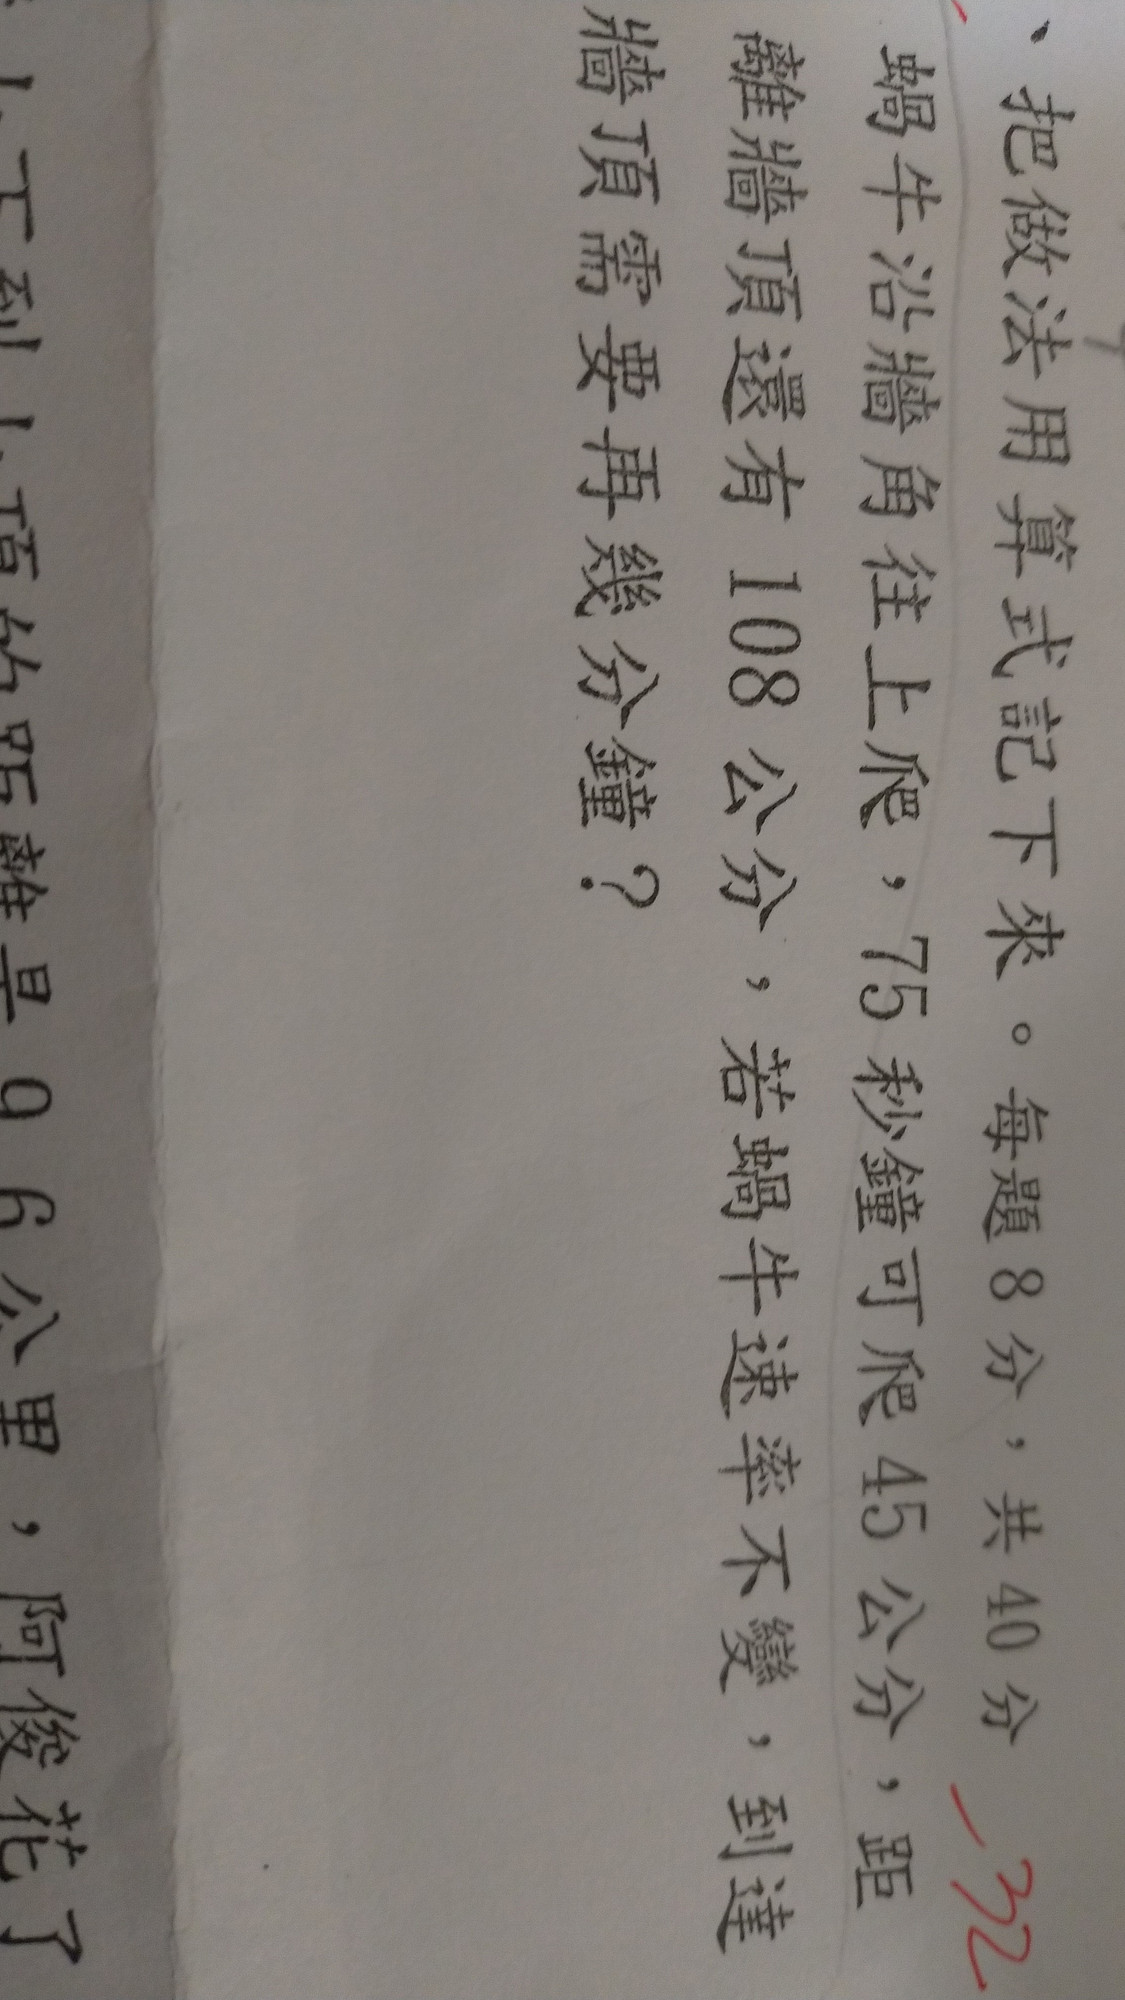 、把做法用算式記下來。每題8分，共40分
-32
蝸牛沿牆角往上爬，75秒鐘可爬45公分，距
離牆頂還有108公分，若蝸牛速率不變，到達
牆頂需要再幾分鐘？
山下到山頂的距離是9.6公里，阿俊花了